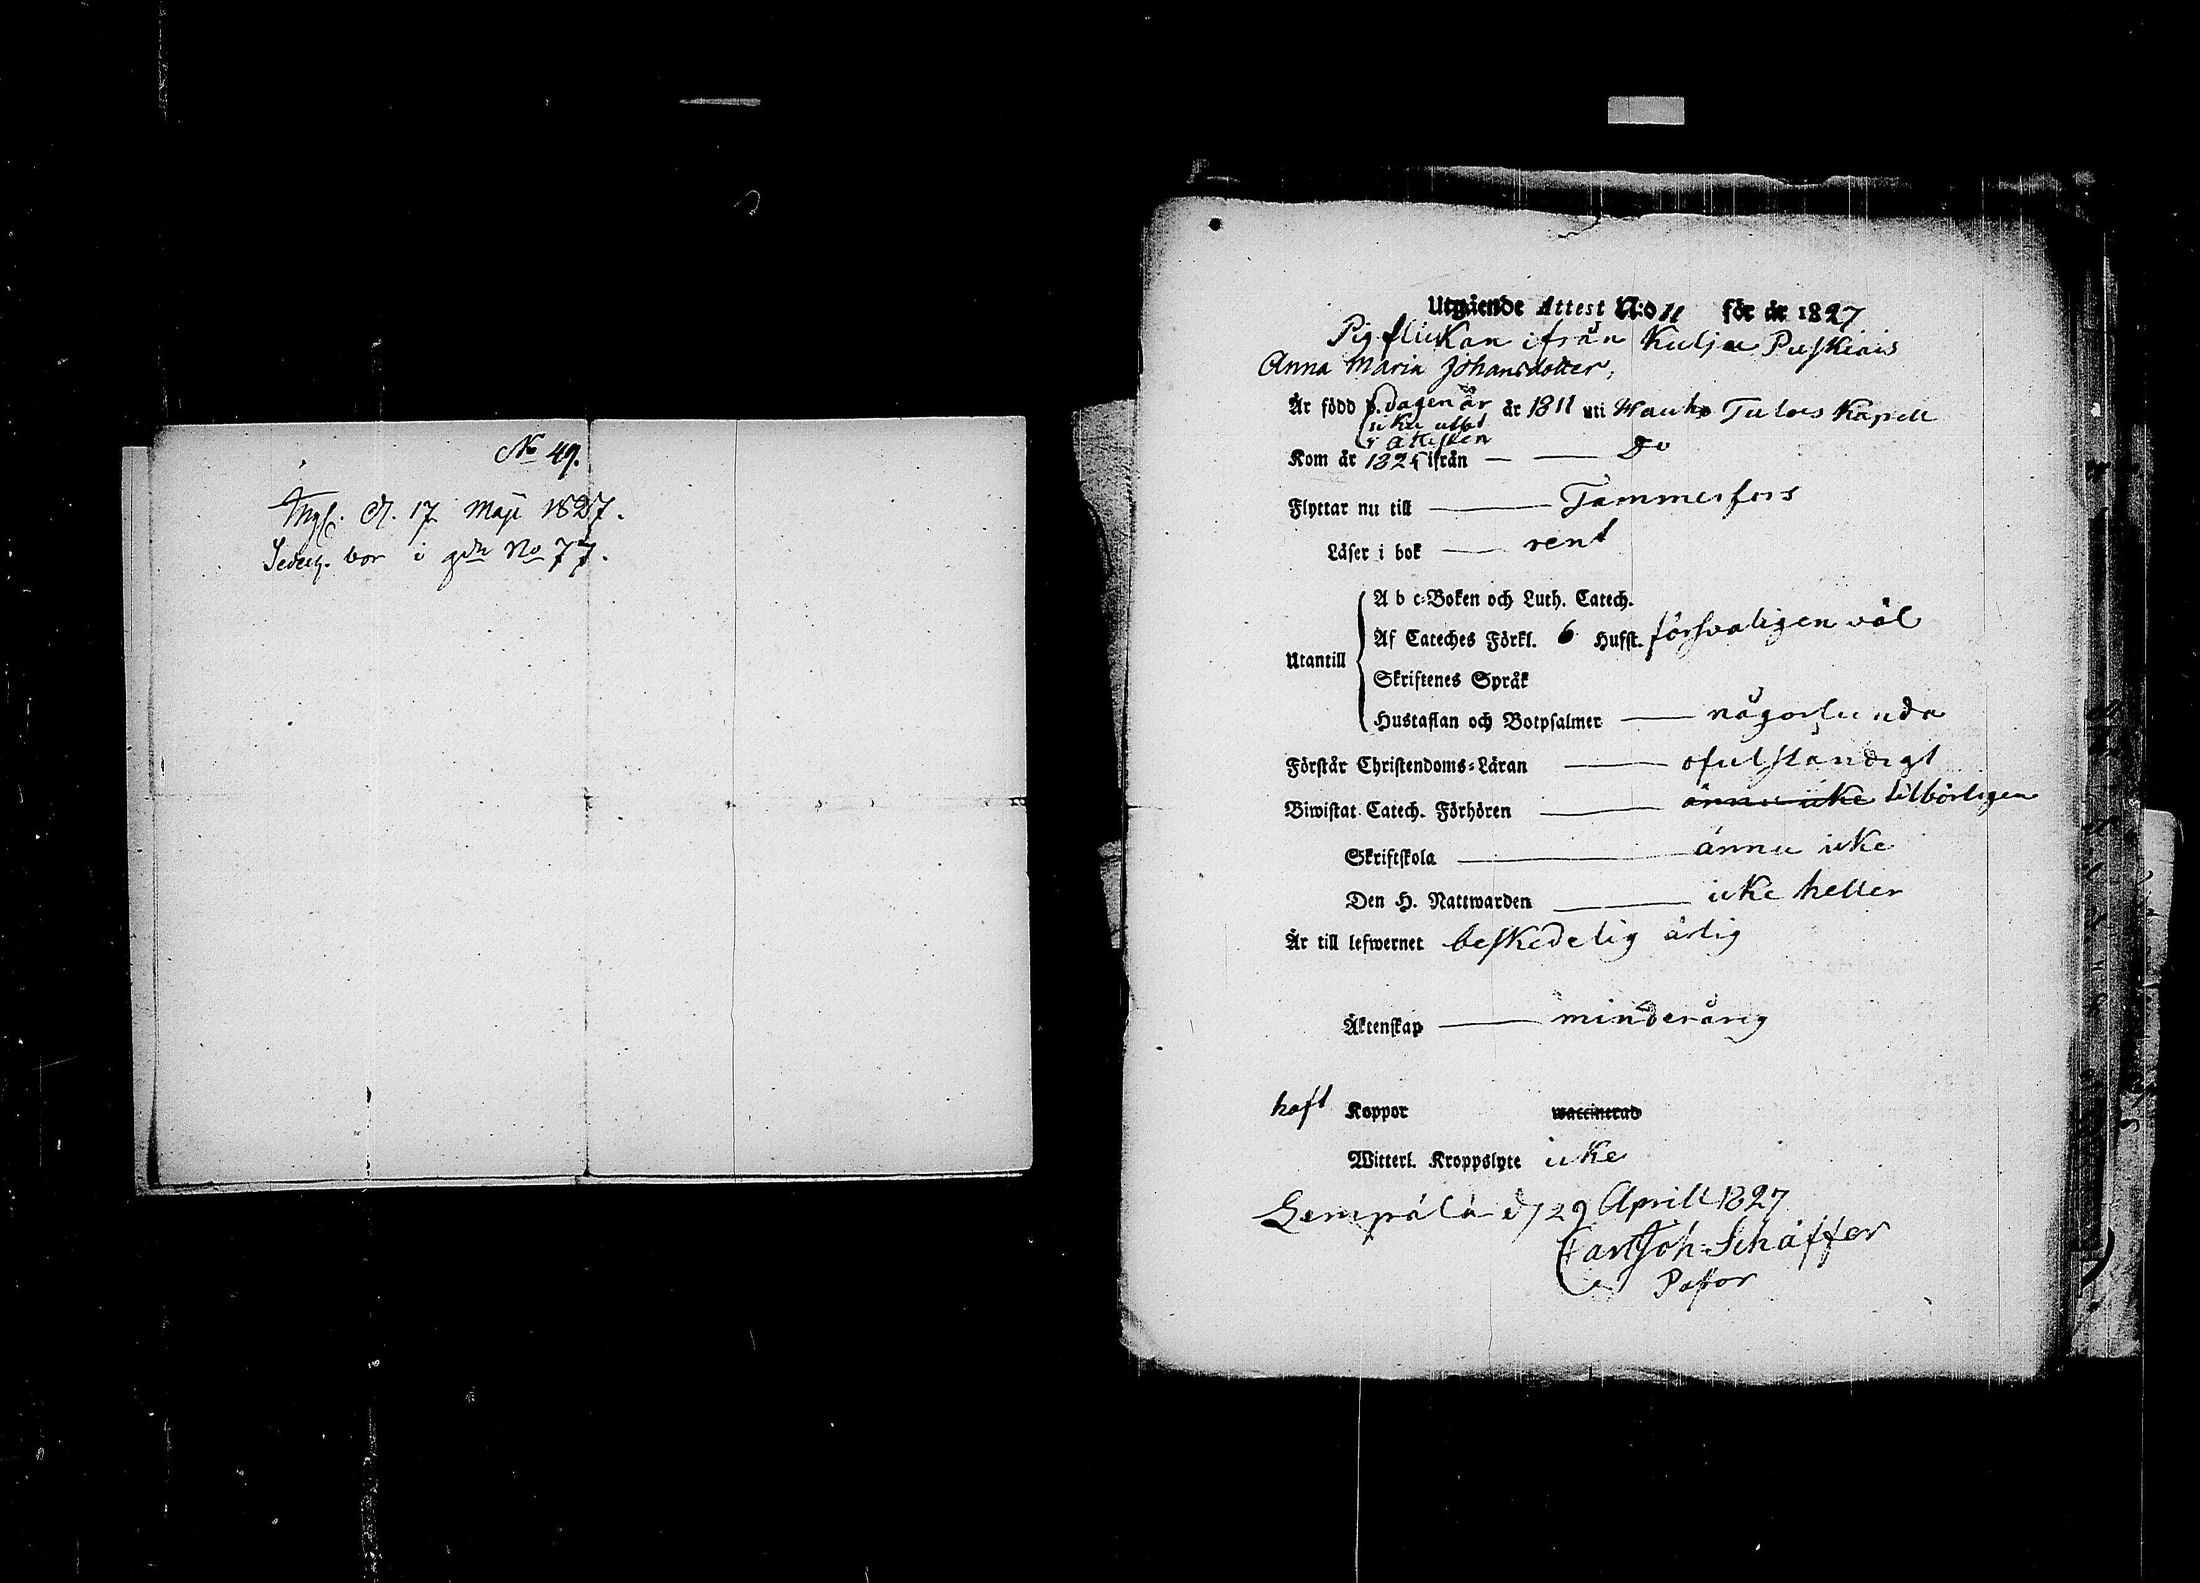 No 49.
d. 17 Maji 1827.
bor i gdn No 77.
Utgående Attest N:o 11 för år 1827
Pigflickan ifrån Kulju Puskiais
Anna Maria Johansdotter,
Är född d. dagen är år 1811 uti Hauho Tulois Kapell
icke utsat
i attesten
Kom år 1825 ifrån — — Do
Flyttar nu till — Tammerfors
Läser i bok — rent
Utantill
A b c-Boken och Luth. Catech.
Af Cateches Förkl. 6 Hufst. försvarligen väl
Skriftenes Språk
Hustaflan och Botpsalmer — någorlunda
Förstår Christendoms-Läran — ofulständigt
Biwistat Catech. Förhören — ännu icke tilbörligen
Skriftskola — ännu icke
Den H. Nattwarden — icke heller
Är till lefwernet beskedelig ärlig
Äktenskap — minderårig
haft Koppor waccinerad
Witterl. Kroppslyte icke
Lempälä d 29 Aprill 1827
Carl Joh: Schäffer
Pastor